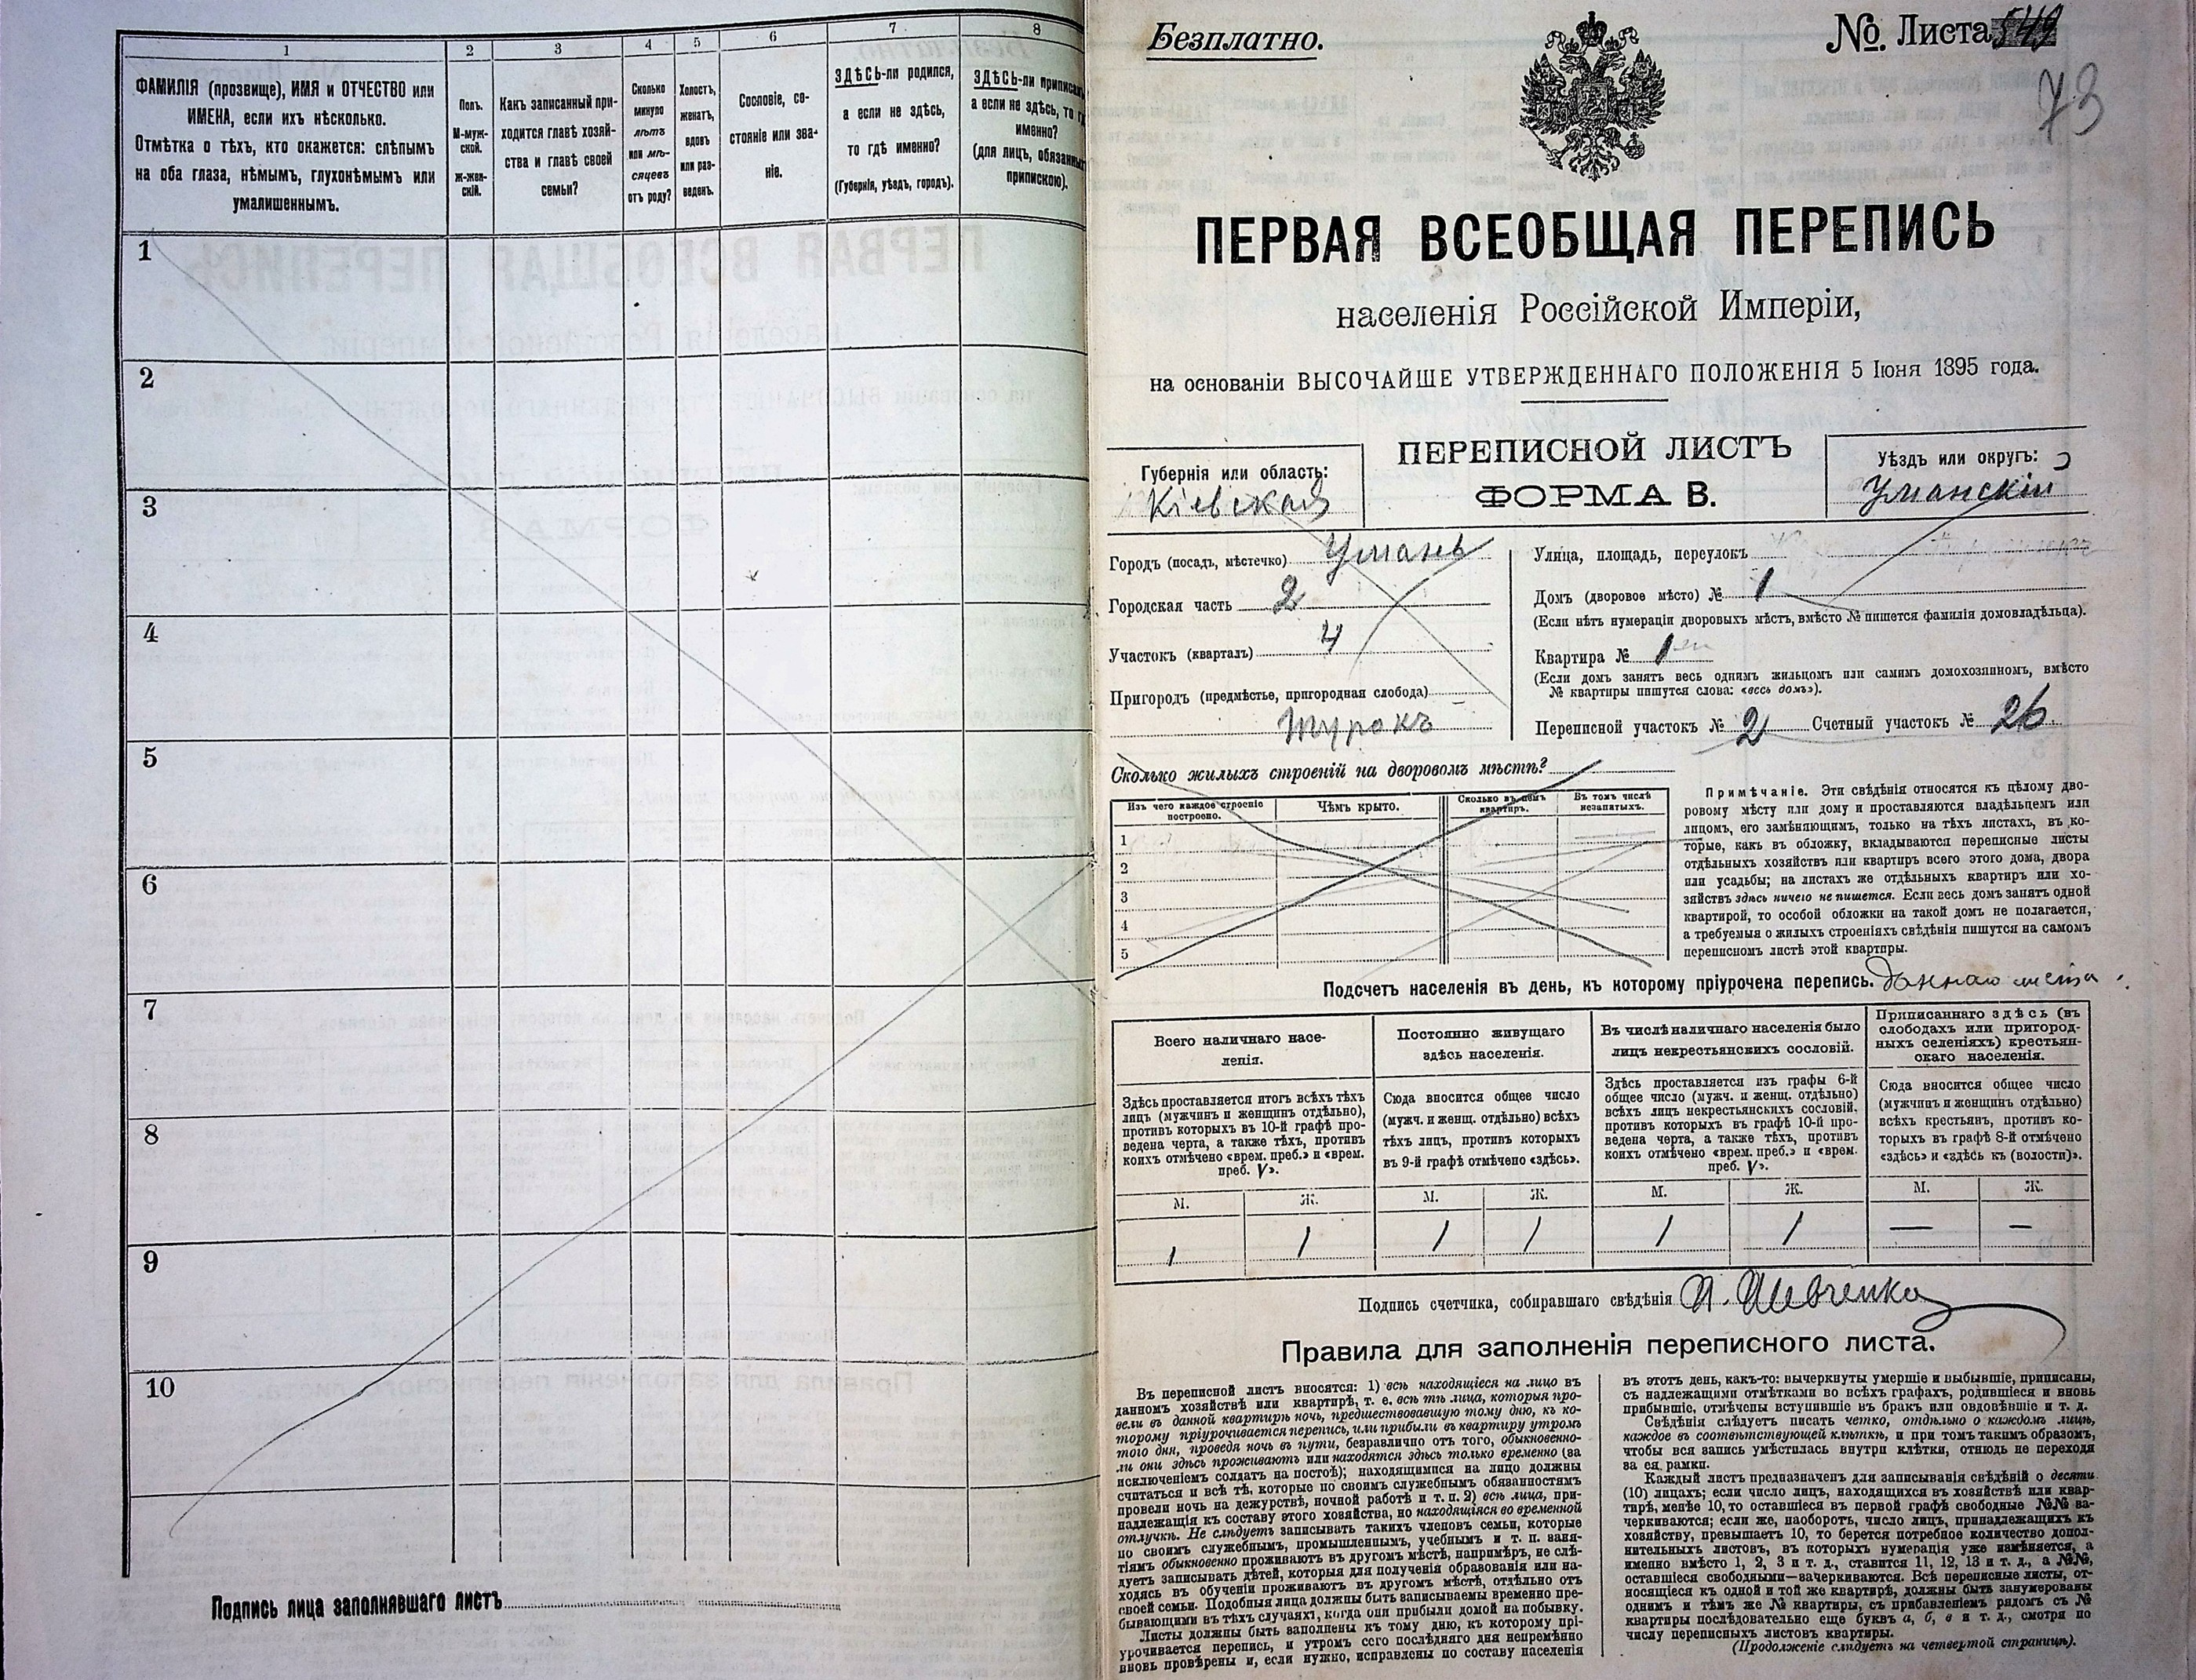 1
2
3
4
5
6
7
8
ФАМИЛІЯ (прозвище), ИМЯ и ОТЧЕСТВО или
ИМЕНА, если ихъ нѣсколько.
Отмѣтка о тѣхъ, кто окажется: слѣпымъ
на оба глаза, нѣмымъ, глухонѣмымъ или
умалишеннымъ.
Полъ.
М-муж-
ской.
Ж-жен-
скій.
Какъ записанный при-
ходится главѣ хозяй-
ства и главѣ своей
семьи?
Сколько
минуло
лѣтъ
или мѣ-
сяцевъ
отъ роду?
Холостъ,
женатъ,
вдовъ
или раз-
веденъ.
Сословіе, со-
стояніе или зва-
ніе.
ЗДѢСЬ-ли родился,
а если не здѣсь,
то гдѣ именно?
(Губернія, уѣздъ, городъ).
ЗДѢСЬ-ли приписанъ,
а если не здѣсь, то гдѣ
именно?
(для лицъ, обязанныхъ
припискою).
1
2
3
4
5
6
7
8
9
10
Подпись лица заполнявшаго листъ
Безплатно.
№. Листа 549
73
ПЕРВАЯ ВСЕОБЩАЯ ПЕРЕПИСЬ
населенія Россійской Имперіи,
на основаніи ВЫСОЧАЙШЕ УТВЕРЖДЕННАГО ПОЛОЖЕНІЯ 5 Іюня 1895 года.
Губернія или область:
Кіевская
ПЕРЕПИСНОЙ ЛИСТЪ
ФОРМА В.
Уѣздъ или округъ:
Уманскій
Городъ (посадъ, мѣстечко) Умань
Городская часть 2
Участокъ (кварталъ) 4
Пригородъ (предмѣстье, пригородная слобода)
Турокъ
Улица, площадь, переулокъ
Домъ (дворовое мѣсто) № 1
(Если нѣтъ нумераціи дворовыхъ мѣстъ, вмѣсто № пишется фамилія домовладѣльца).
Квартира № 1
(Если домъ занятъ весь однимъ жильцомъ или самимъ домохозяиномъ, вмѣсто
№ квартиры пишутся слова: «весь домъ»).
Переписной участокъ № 2 Счетный участокъ № 26.
Сколько жилыхъ строеній на дворовомъ мѣстѣ?
Изъ чего каждое строеніе
построено.
Чѣмъ крыто.
Сколько въ немъ
квартиръ.
Въ томъ числѣ
незанятыхъ.
1
2
3
4
5
Примѣчаніе. Эти свѣдѣнія относятся къ цѣлому дво-
ровому мѣсту или дому и проставляются владѣльцемъ или
лицомъ, его замѣняющимъ, только на тѣхъ листахъ, въ ко-
торые, какъ въ обложку, вкладываются переписные листы
отдѣльныхъ хозяйствъ или квартиръ всего этого дома, двора
или усадьбы; на листахъ же отдѣльныхъ квартиръ или хо-
зяйствъ здѣсь ничего не пишется. Если весь домъ занятъ одной
квартирой, то особой обложки на такой домъ не полагается,
а требуемыя о жилыхъ строеніяхъ свѣдѣнія пишутся на самомъ
переписномъ листѣ этой квартиры.
Подсчетъ населенія въ день, къ которому пріурочена перепись. даннаго листа.
Всего наличнаго насе-
ленія.
Постоянно живущаго
здѣсь населенія.
Въ числѣ наличнаго населенія было
лицъ некрестьянскихъ сословій.
Приписаннаго здѣсь (въ
слободахъ или пригород-
ныхъ селеніяхъ) крестьян-
скаго населенія.
Здѣсь проставляется итогъ всѣхъ тѣхъ
лицъ (мужчинъ и женщинъ отдѣльно),
противъ которыхъ въ 10-й графѣ про-
ведена черта, а также тѣхъ, противъ
коихъ отмѣчено «врем. преб.» и «врем.
преб. V».
Сюда вносится общее число
(мужч. и женщ. отдѣльно) всѣхъ
тѣхъ лицъ, противъ которыхъ
въ 9-й графѣ отмѣчено «здѣсь».
Здѣсь проставляется изъ графы 6-й
общее число (мужч. и женщ. отдѣльно)
всѣхъ лицъ некрестьянскихъ сословій,
противъ которыхъ въ графѣ 10-й про-
ведена черта, а также тѣхъ, противъ
коихъ отмѣчено «врем. преб.» и «врем.
преб. V».
Сюда вносится общее число
(мужчинъ и женщинъ отдѣльно)
всѣхъ крестьянъ, противъ ко-
торыхъ въ графѣ 8-й отмѣчено
«здѣсь» и «здѣсь къ (волости)».
М. Ж. М. Ж. М. Ж. М. Ж.
1 1 1 1 1 1 — —
Подпись счетчика, собиравшаго свѣдѣнія П. Шевченко
Правила для заполненія переписного листа.
Въ переписной листъ вносятся: 1) всѣ находящіеся на лицо въ
данномъ хозяйствѣ или квартирѣ, т. е. всѣ тѣ лица, которыя про-
вели въ данной квартирѣ ночь, предшествовавшую тому дню, къ ко-
торому пріурочивается перепись, или прибыли въ квартиру утромъ
того дня, проведя ночь въ пути, безразлично от того, обыкновенно-
ли они здѣсь проживаютъ или находятся здѣсь только временно (за
исключеніемъ солдатъ на постоѣ); находящимися на лицо должны
считаться и всѣ тѣ, которые по своимъ служебнымъ обязанностямъ
провели ночь на дежурствѣ, ночной работѣ и т. п. 2) всѣ лица, при-
надлежащія къ составу этого хозяйства, но находящіяся во временной
отлучкѣ. Не слѣдуетъ записывать такихъ членовъ семьи, которые
по своимъ служебнымъ, промышленнымъ, учебнымъ и т. п. заня-
тіямъ обыкновенно проживаютъ въ другомъ мѣстѣ, напримѣръ, не слѣ-
дуетъ записывать дѣтей, которыя для полученія образованія или на-
ходясь въ обученіи проживаютъ въ другомъ мѣстѣ, отдѣльно отъ
своей семьи. Подобныя лица должны быть записываемы временно пре-
бывающими въ тѣхъ случаяхъ, когда они прибыли домой на побывку.
Листы должны быть заполнены къ тому дню, къ которому прі-
урочивается перепись, и утромъ сего послѣдняго дня непремѣнно
вновь провѣрены и, если нужно, исправлены по составу населенія
въ этотъ день, какъ-то: вычеркнуты умершіе и выбывшіе, приписаны,
съ надлежащими отмѣтками во всѣхъ графахъ, родившіеся и вновь
прибывшіе, отмѣчены вступившіе въ бракъ или овдовѣвшіе и т. д.
Свѣдѣнія слѣдуетъ писать четко, отдѣльно о каждомъ лицѣ,
каждое въ соотвѣтствующей клѣткѣ, и при томъ такимъ образомъ,
чтобы вся запись умѣстилась внутри клѣтки, отнюдь не переходя
за ея рамки.
Каждый листъ предназначенъ для записыванія свѣдѣній о десяти
(10) лицахъ; если число лицъ, находящихся въ хозяйствѣ или квар-
тирѣ, менѣе 10, то оставшіеся въ первой графѣ свободные №№ за-
черкиваются; если же, наоборотъ, число лицъ, принадлежащихъ къ
хозяйству, превышаетъ 10, то берется потребное количество допол-
нительныхъ листовъ, въ которыхъ нумерація уже измѣняется, а
именно вмѣсто 1, 2, 3 и т. д., ставится 11, 12, 13 и т. д., а №№,
оставшіеся свободными—зачеркиваются. Всѣ переписные листы, от-
носящіеся къ одной и той же квартирѣ, должны быть занумерованы
однимъ и тѣмъ же № квартиры, съ прибавленіемъ рядомъ съ №
квартиры послѣдовательно еще буквъ а, б, в и т. д., смотря по
числу переписныхъ листовъ квартиры.
(Продолженіе слѣдуетъ на четвертой страницѣ).